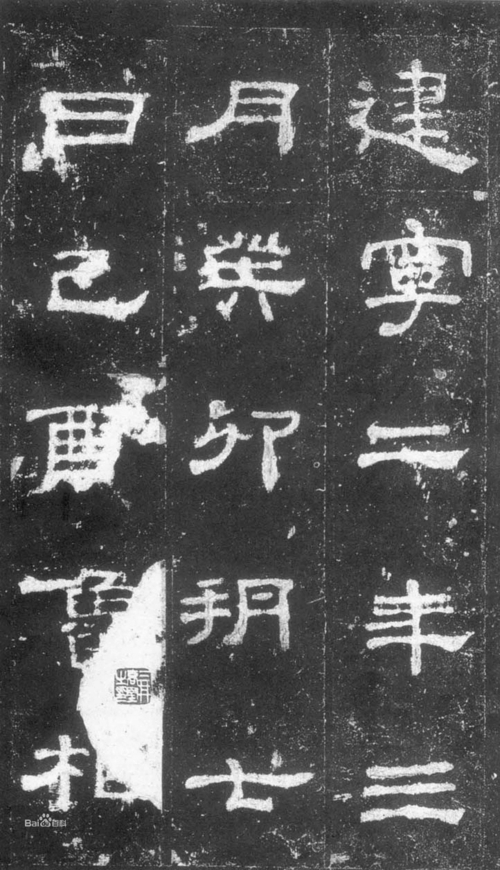 建寧二年三
月癸卯朔七
日己酉魯相
Bai百科